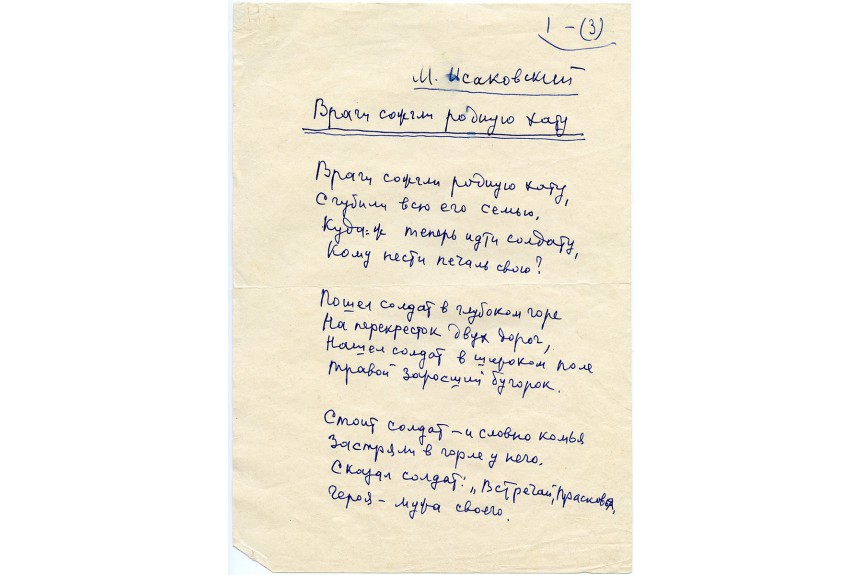 1 – (3)
М. Исаковский
Враги сожгли родную хату
Враги сожгли родную хату,
Сгубили всю его семью,
Куда-ж теперь идти солдату,
Кому нести печаль свою?
Пошел солдат в глубоком горе
На перекресток двух дорог,
Нашел солдат в широком поле
Травой заросший бугорок.
Стоит солдат – и словно комья
Застряли в горле у него.
Сказал солдат: „Встречай, Прасковья,
Героя – мужа своего.